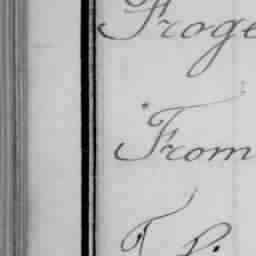 Froge
From